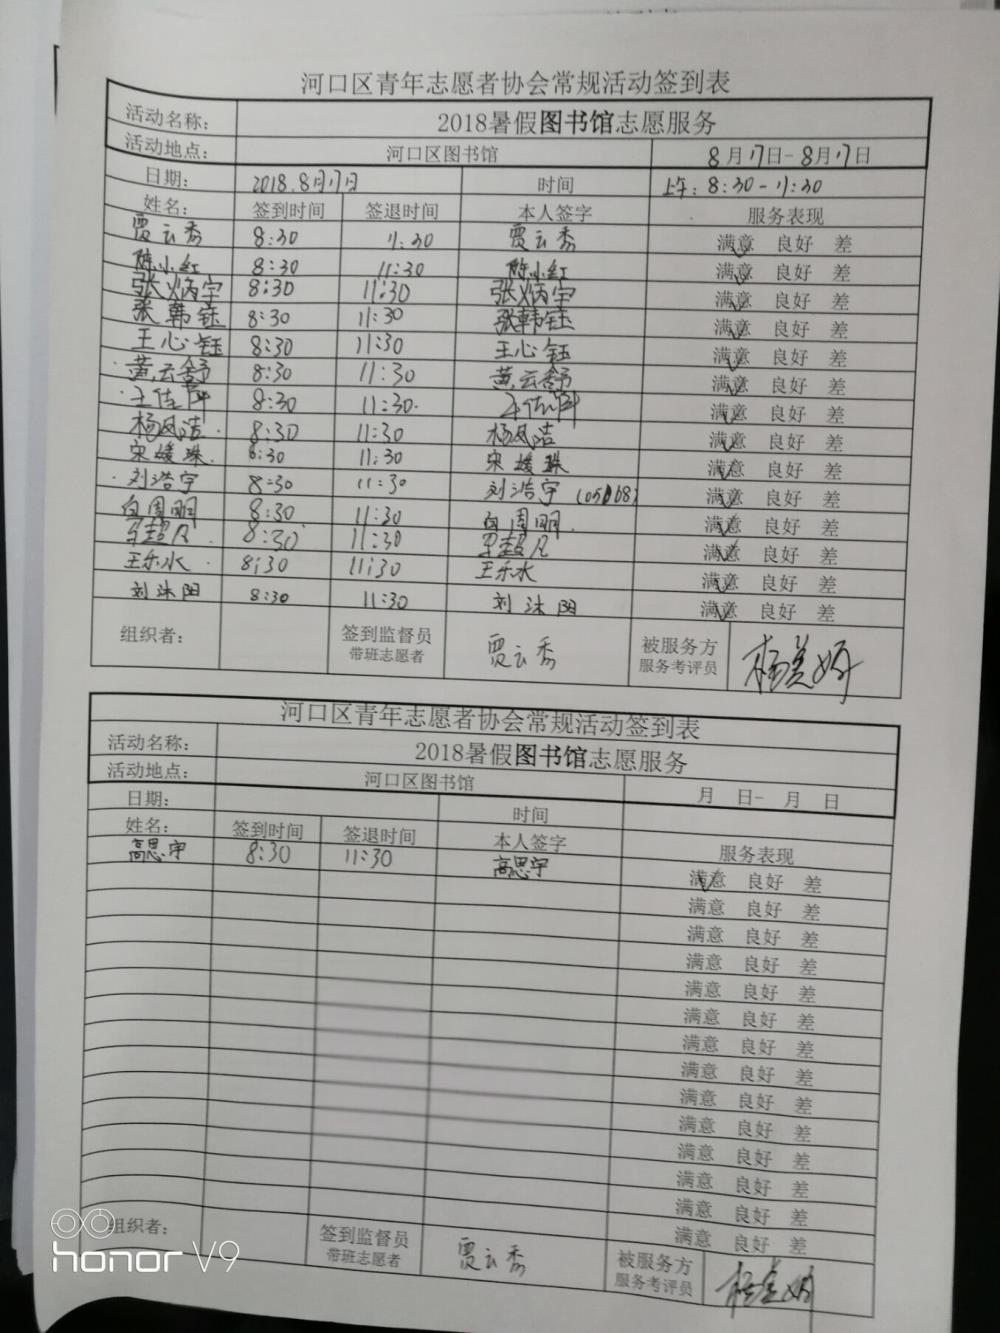 河口区青年志愿者协会常规活动签到表
活动名称: 2018暑假图书馆志愿服务
活动地点: 河口区图书馆 8月17日-8月17日
日期: 2018.8月17日 时间 上午:8:30-11:30
姓名: 签到时间 签退时间 本人签字 服务表现
贾云秀 8:30 11:30 贾云秀 满意 良好 差
陈小红 8:30 11:30 陈小红 满意 良好 差
张炳宇 8:30 11:30 张炳宇 满意 良好 差
张韩钰 8:30 11:30 张韩钰 满意 良好 差
王心钰 8:30 11:30 王心钰 满意 良好 差
黄云舒 8:30 11:30 黄云舒 满意 良好 差
8:30 11:30 满意 良好 差
杨凤洁 8:30 11:30 杨凤洁 满意 良好 差
宋媛珠 8:30 11:30 宋媛珠 满意 良好 差
刘浩宇 8:30 11:30 刘浩宇 满意 良好 差
白周明 8:30 11:30 白周明 满意 良好 差
8:30 11:30 满意 良好 差
王乐水 8:30 11:30 王乐水 满意 良好 差
刘沐阳 8:30 11:30 刘沐阳 满意 良好 差
组织者: 签到监督员 贾云秀 被服务方
带班志愿者 服务考评员
河口区青年志愿者协会常规活动签到表
活动名称: 2018暑假图书馆志愿服务
活动地点: 河口区图书馆 月 日- 月 日
日期: 时间
姓名: 签到时间 签退时间 本人签字 服务表现
高思宇 8:30 11:30 高思宇 满意 良好 差
满意 良好 差
满意 良好 差
满意 良好 差
满意 良好 差
满意 良好 差
满意 良好 差
满意 良好 差
满意 良好 差
满意 良好 差
满意 良好 差
满意 良好 差
满意 良好 差
满意 良好 差
组织者: 签到监督员 贾云秀 被服务方
带班志愿者 服务考评员
honor V9